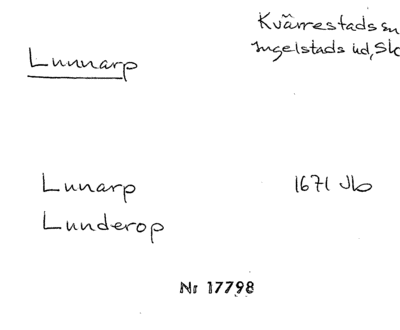 Lunnarp
Kvärrestads sn
Ingelstads hd, Sk
Lunarp 1671 Jb
Lunderop
Nr 17798